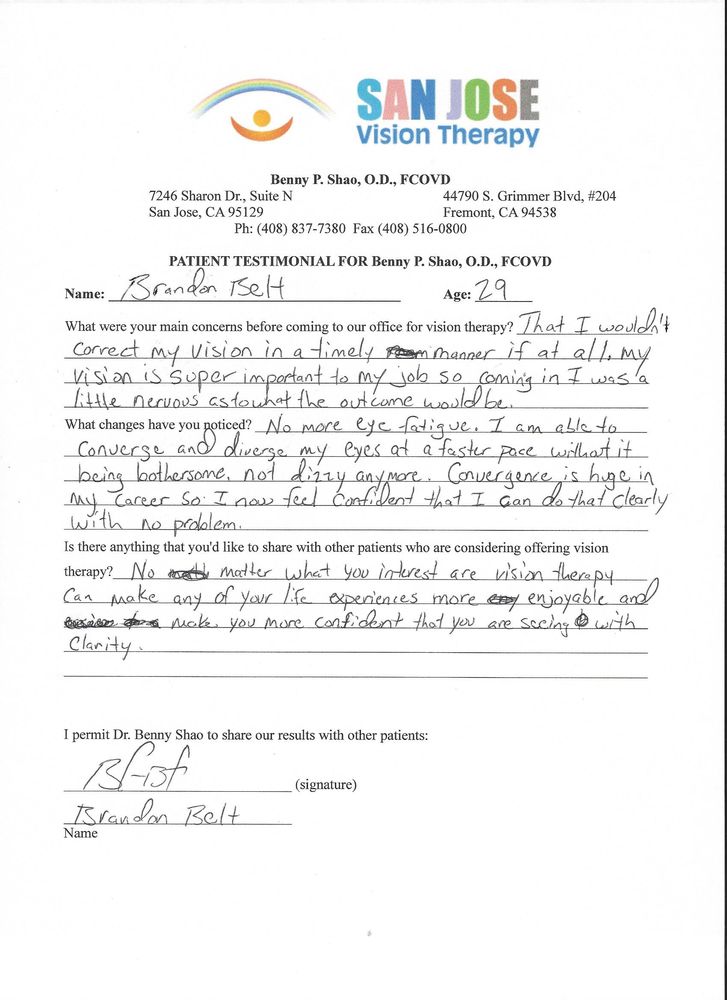 SAN JOSE
Vision Therapy
Benny P. Shao, O.D., FCOVD
7246 Sharon Dr., Suite N 44790 S. Grimmer Blvd, #204
San Jose, CA 95129 Fremont, CA 94538
Ph: (408) 837-7380 Fax (408) 516-0800
PATIENT TESTIMONIAL FOR Benny P. Shao, O.D., FCOVD
Name: Brandon Belt Age: 29
What were your main concerns before coming to our office for vision therapy? That I wouldn't
correct my vision in a timely manner if at all. My
vision is super important to my job so coming in I was a
little nervous as to what the outcome would be.
What changes have you noticed? No more eye fatigue. I am able to
converge and diverge my eyes at a faster pace without it
being bothersome, not dizzy anymore. Convergence is huge in
my career so I now feel confident that I can do that clearly
with no problem.
Is there anything that you'd like to share with other patients who are considering offering vision
therapy? No matter what you interest are vision therapy
can make any of your life experiences more enjoyable and
make you more confident that you are seeing with
clarity.
I permit Dr. Benny Shao to share our results with other patients:
(signature)
Brandon Belt
Name